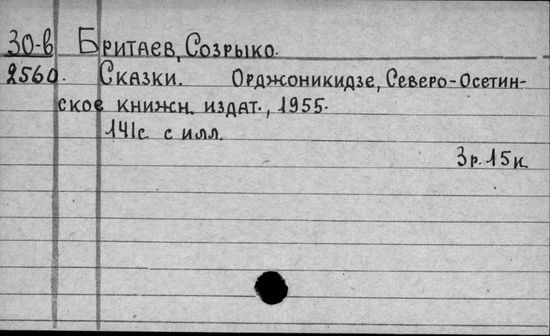 30-в Бритаев, Созрыко.
2560. Сказки. Орджоникидзе, Северо-Осетин-
ское книжн. издат., 1955.
141с. с илл.
3р. 15к